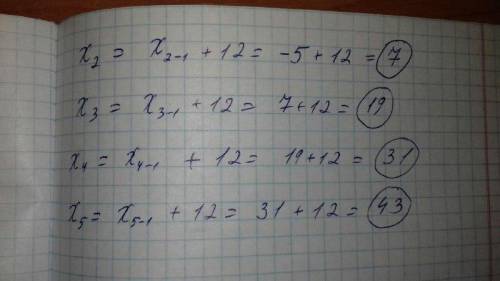 x₂ = x₂₋₁ + 12 = -5 + 12 = 7
x₃ = x₃₋₁ + 12 = 7 + 12 = 19
x₄ = x₄₋₁ + 12 = 19 + 12 = 31
x₅ = x₅₋₁ + 12 = 31 + 12 = 43